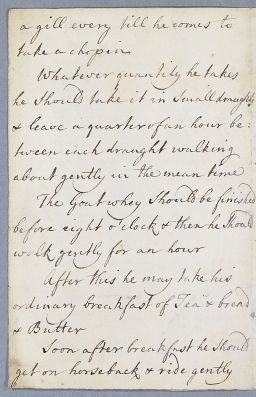 a gill every till he comes to
take a chopin
Whatever quantity he takes
he Should take it in Small draughts
& leave a quarter of an hour be:
tween each draught walking
about gently in the mean time
The Goat whey Should be finished
before eight o'clock & then he Should
walk gently for an hour
After this he may take his
ordinary breakfast of Tea & bread
& Butter
Soon after breakfast he Should
get on horseback & ride gently